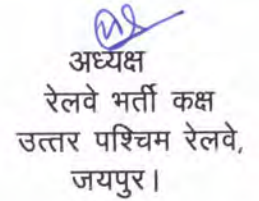 अध्यक्ष
रेलवे भर्ती कक्ष
उत्तर पश्चिम रेलवे,
जयपुर।